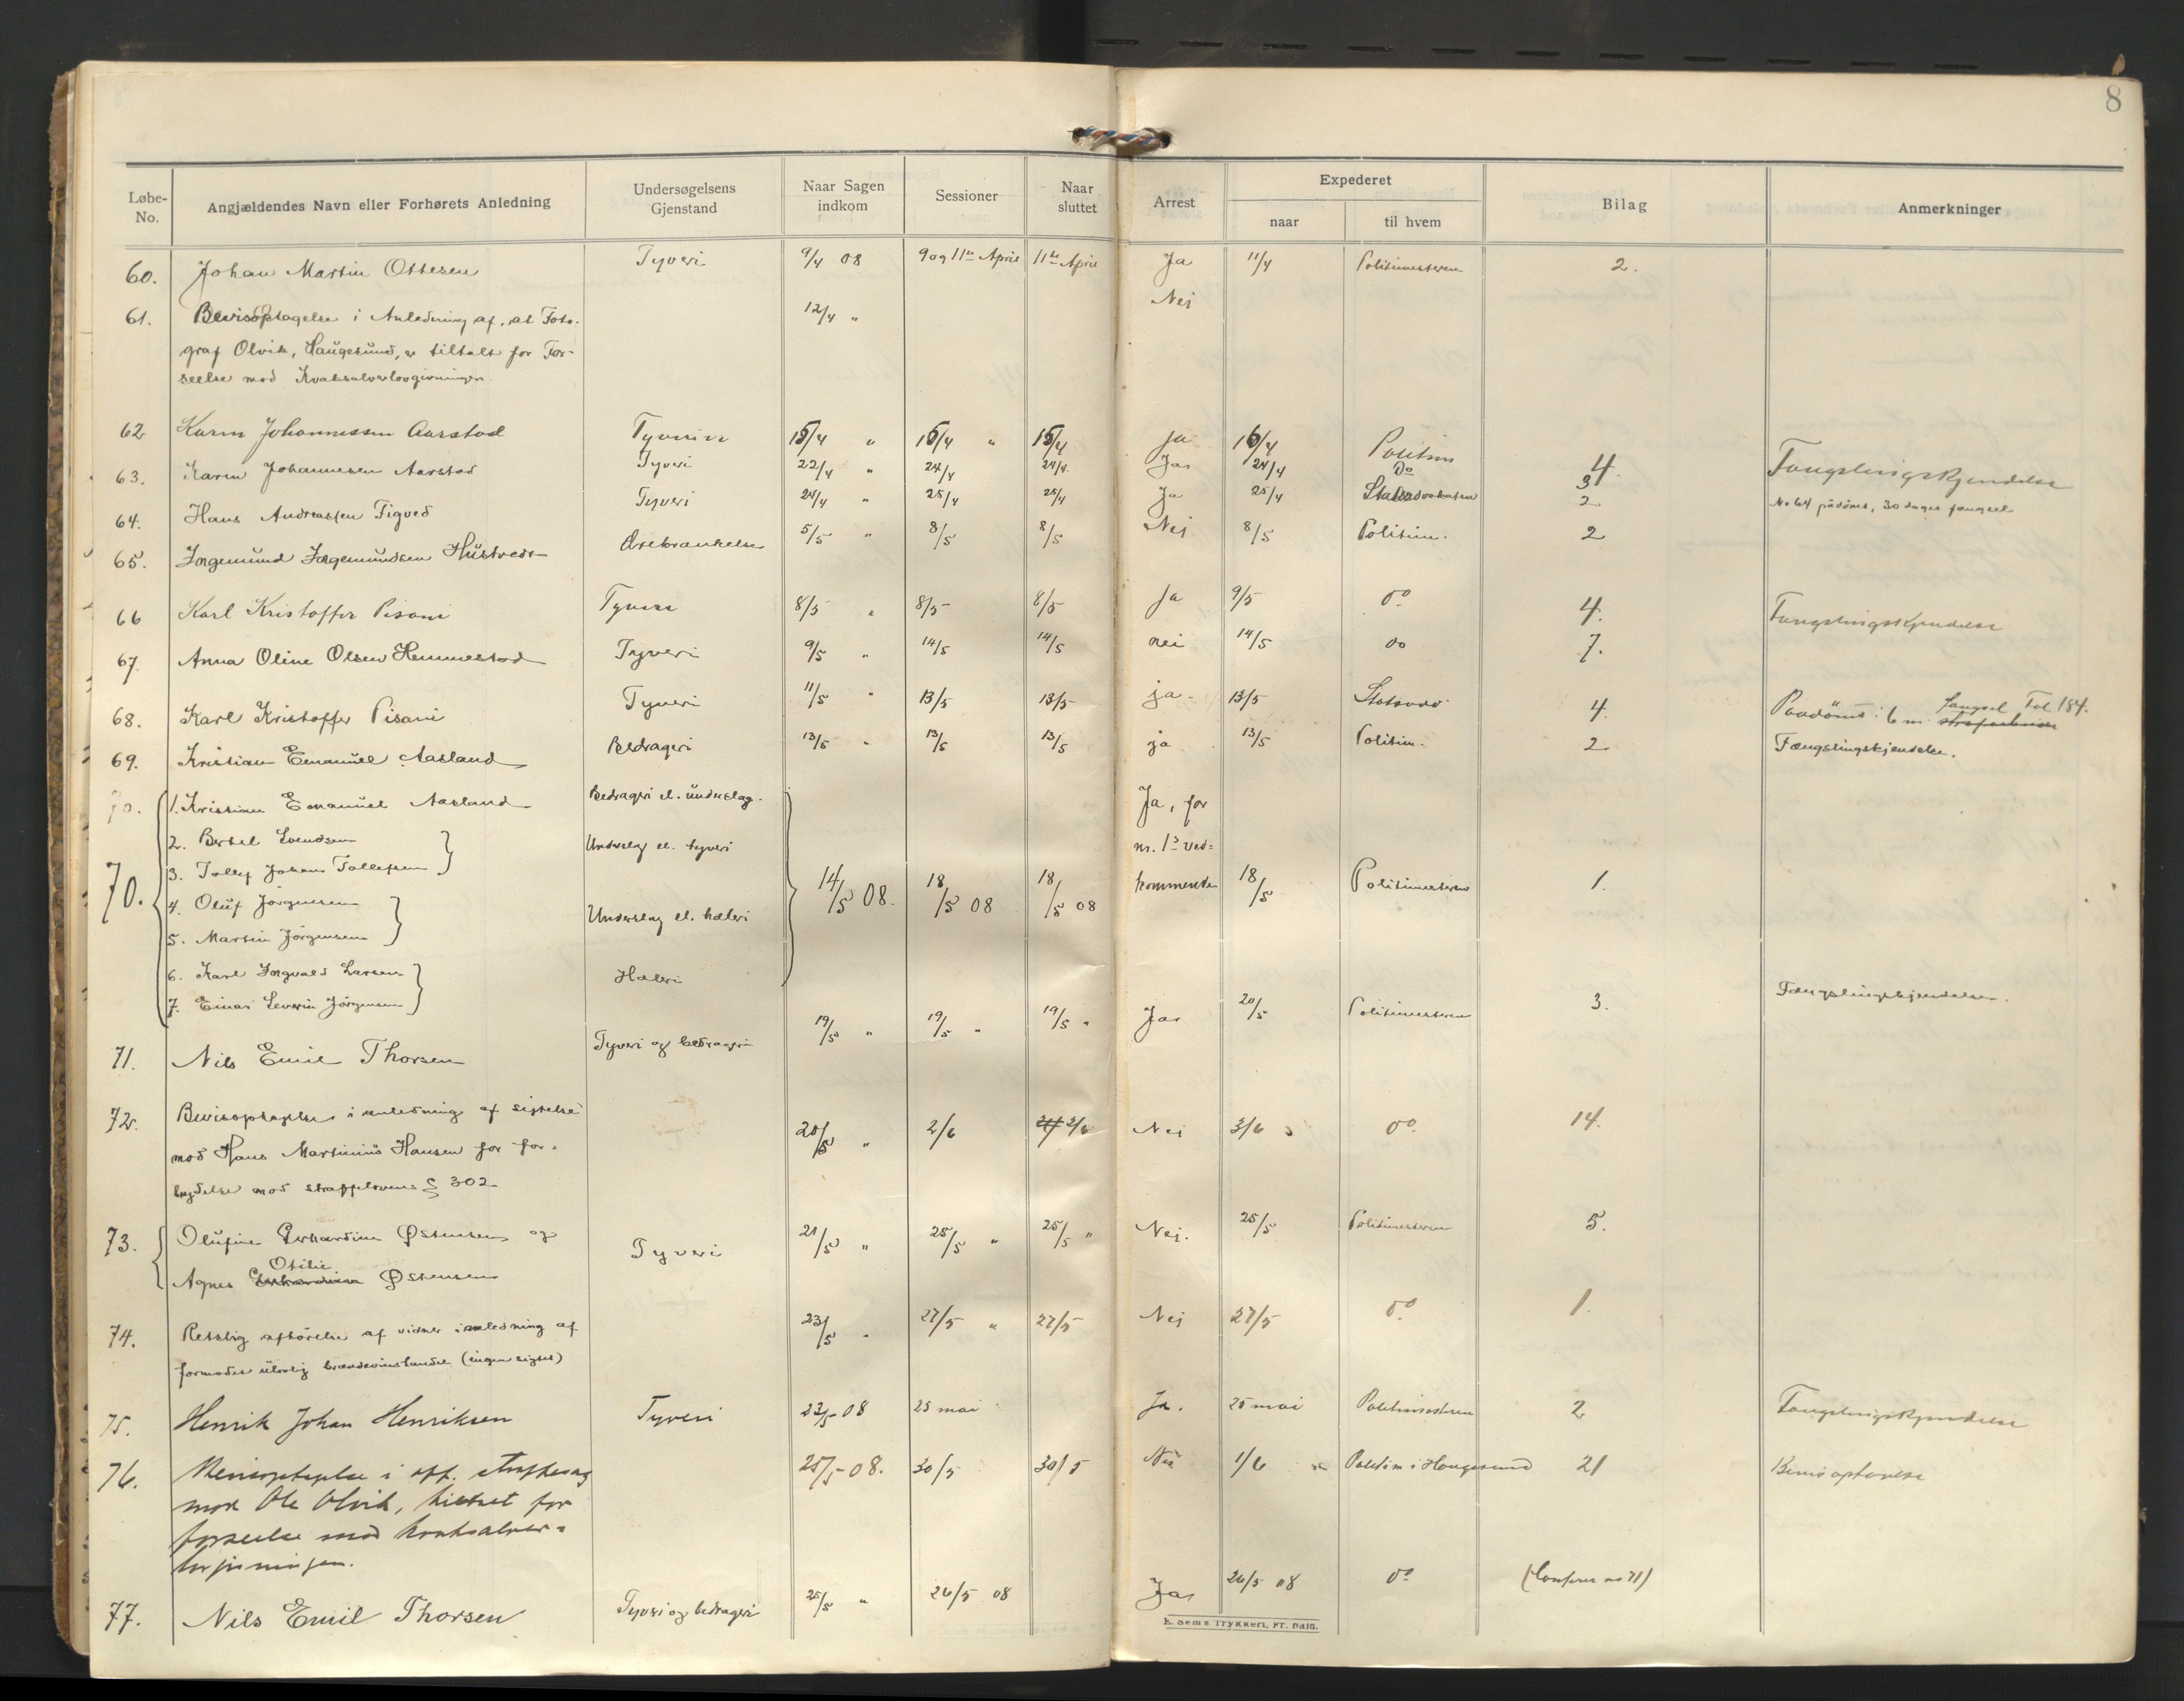 8
Løbe-No. Angjældendes Navn eller Forhørets Anledning Undersøgelsens Gjenstand Naar Sagen indkom Sessioner Naar sluttet Arrest Expederet naar til hvem Bilag Anmerkninger
60. Johan Martin Ottesen Tyveri 9/4 08 9 og 11te April 11te April Ja 11/4 Politimesteren 2.
61. Bevisoptagelse i Anledning af, at Foto- 12/4 " Nei
graf Olvik, Haugesund, er tiltalt for For-
seelse mod Kvaksalverlovgivningen.
62 Karen Johannessen Aarstad Tyveri 15/4 " 15/4 " 15/4 ja 16/4 Politim 4. Fængslingskjendelse
63. Karen Johannesen Aarstad Tyveri 22/4 " 24/4 24/4 Ja 24/4 Do 3
64. Hans Andreassen Figved Tyveri 24/4 " 25/4 25/4 Ja 25/4 Statsadvokaten 2 No 64 pådömt, 30 dages fængsel
65. Ingemund Ingemundsen Hustvedt Ærekrænkelse 5/5 " 8/5 8/5 Nei 8/5 Politim. 2
66 Karl Kristoffer Pisani Tyveri 8/5 " 8/5 8/5 Ja 9/5 do 4. Fængslingskjendelse
67. Anna Oline Olsen Hemmestad Tyveri 9/5 " 14/5 14/5 nei 14/5 do 7.
68. Karl Kristoffer Pisani Tyveri 11/5 " 13/5 13/5 ja 13/5 Statsadv 4. Paadömt: 6 m fængsel Fol 184.
69. Kristian Emanuel Aasland Bedrageri 13/5 " 13/5 13/5 ja 13/5 Politim. 2 Fængslingskjendelse.
70. 1. Kristian Emanuel Aasland Bedrageri el. underslag. Ja, for
2. Bertel Svendsen Underslag el. tyveri nr. 1s ved=
70. 3. Tollef Johan Tollefsen 14/5 08. 18/5 08 18/5 08 kommende 18/5 Politimesteren 1.
4. Oluf Jörgensen Underslag el. hæleri
5. Martin Jörgensen
6. Karl Ingvald Larsen Hæleri
7. Einar Severin Jörgensen
71. Nils Emil Thorsen Tyveri og bedrageri 19/5 " 19/5 " 19/5 " Ja 20/5 Politimesteren 3. Fængslingskjendelse.
72. Bevisoptagelse i anledning af sigtelse 20/5 " 2/6 2/6 Nei 3/6 do 14.
mod Hans Martinius Hansen for for-
brydelse mod straffelovens § 302
73. Olufine Erhardine Østensen og Tyveri 21/5 " 25/5 " 25/5 " Nei. 25/5 Politimesteren 5.
Agnes Otilie Østensen
74. Retslig afhörelse af vidner i anledning af 23/5 " 27/5 " 27/5 Nei 27/5 do 1.
formodet ulovlig brændevinshandel (ingen sigtet)
75. Henrik Johan Henriksen Tyveri 23/5 08 25 mai Ja. 25 mai Politimesteren 2 Fængslingskjendelse
76. Bevisoptagelse i off. straffesag 25/5 08. 30/5 30/5 Nei 1/6 Politim i Haugesund 21 Bevisoptagelse
mod Ole Olvik, tiltalt for
forseelse mod kvaksalver-
lovgivningen.
77. Nils Emil Thorsen Tyveri og bedrageri 25/5 " 26/5 08 Ja 26/5 08 do (Confer no 71)
E. Sems Trykkeri, Fr. hald.